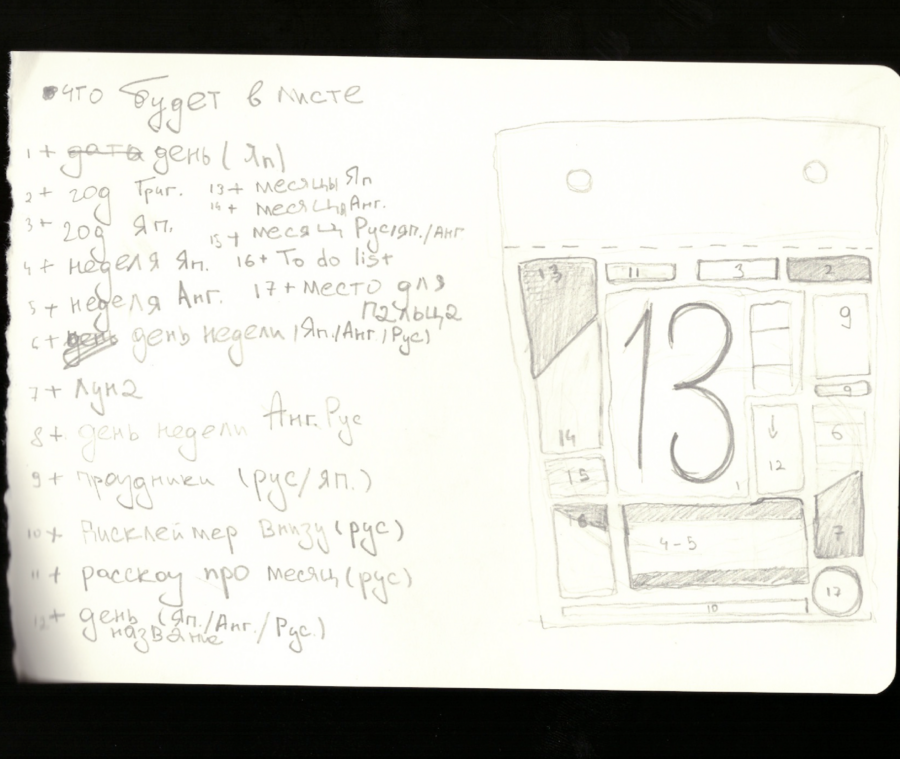 что будет в листе
1 + дата день (Яп)
2 + год Григ.
13 + месяцы Яп
3 + год Яп.
14 + месяц Анг.
15 + месяц Рус/яп./Анг
4 + неделя Яп.
16 + To do list
5 + неделя Анг.
17 + место для
пальца
6 + день день недели (Яп./Анг/Рус)
7 + Луна
8 + день недели Анг. Рус
9 + праздники (рус/яп.)
10 + Дисклеймер внизу (рус)
11 + рассказ про месяц (рус)
12 + день (Яп./Анг./Рус.)
название
13
11
3
2
13
9
9
14
12
6
15
1
16
4-5
7
17
10